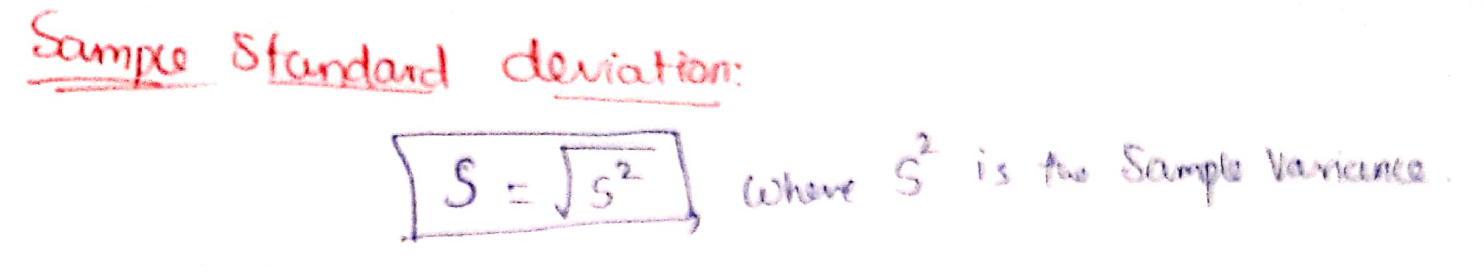 Sample Standard deviation:
S = √S², where S² is the Sample Variance.